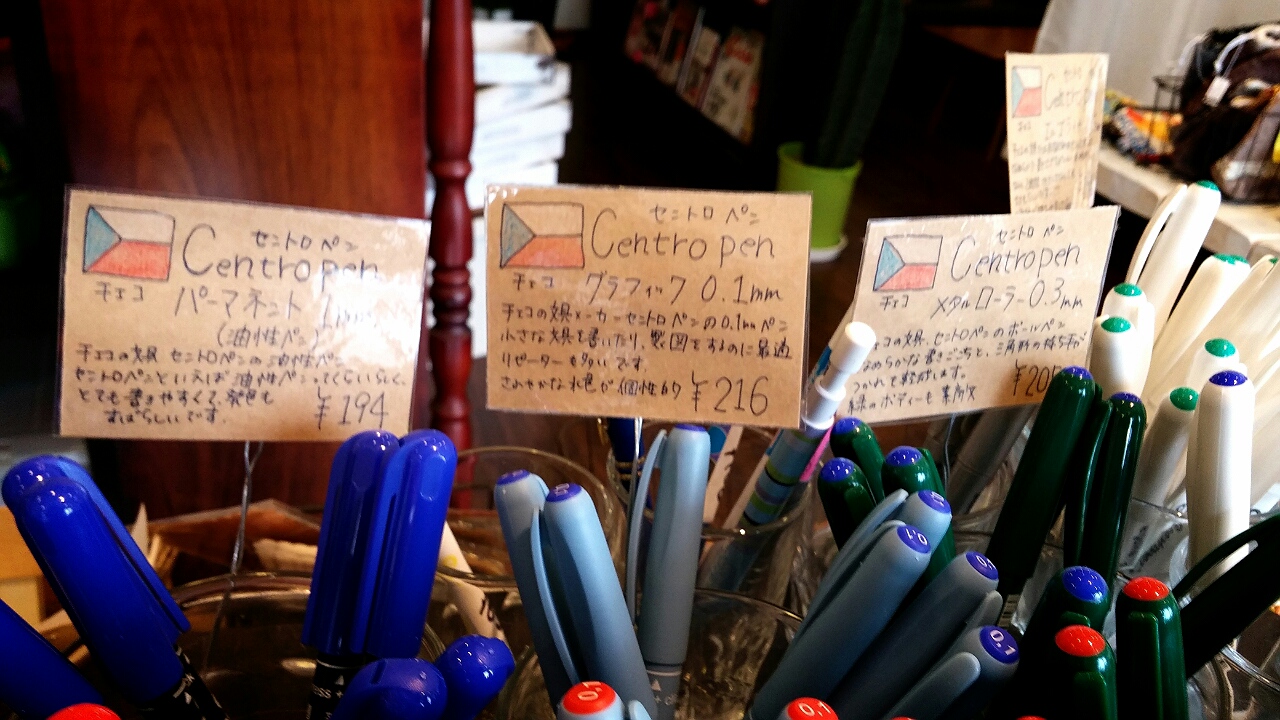 セントロ ペン
Centropen
チェコ
パーマネント 1mm
(油性ペン)
チェコの文具 セントロペンの油性ペン
セントロペンといえば油性ペンってくらいらしく、
とても書きやすくて、発色も
すばらしいです。
¥194
セントロ ペン
Centropen
チェコ
グラフィック 0.1mm
チェコの文具メーカーセントロペンの0.1mmペン
小さな文具を書いたり、製図をするのに最適
リピーターも多いです。
さわやかな水色が個性的
¥216
セントロ ペン
Centropen
チェコ
メタルローラー0.3mm
チェコの文具、セントロペンのボールペン
なめらかな書きごこちと、三角形の持ち手が
つかれを軽減します。
緑のボディーも
¥205
0.1
0.1